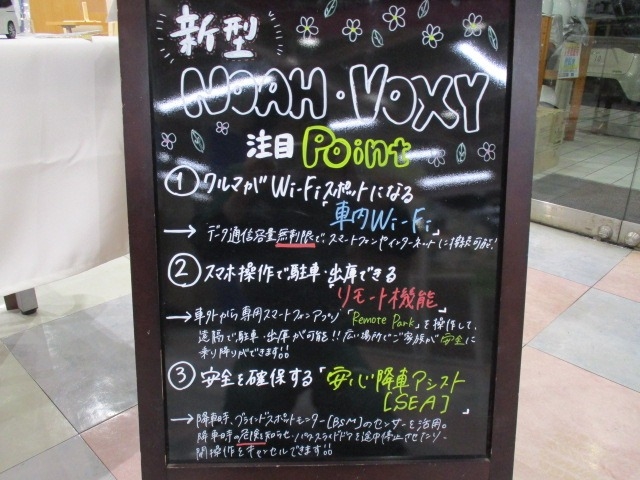 新型
NOAH・VOXY
注目 Point
① クルマがWi-Fiスポットになる
「車内Wi-Fi」
→ データ通信容量無制限で、スマートフォンやインターネットに接続可能!
② スマホ操作で駐車・出庫できる
「リモート機能」
→ 車外から専用スマートフォンアプリ「Remote Park」を操作して、
遠隔で駐車・出庫が可能!! 広い場所でご家族が安全に
乗り降りができます!!
③ 安全を確保する「安心降車アシスト
[SEA]」
→ 降車時、ブラインドスポットモニター[BSM]のセンサーを活用。
降車時の危険を知らせ、パワースライドドアを途中停止させたり、
開操作をキャンセルできます!!